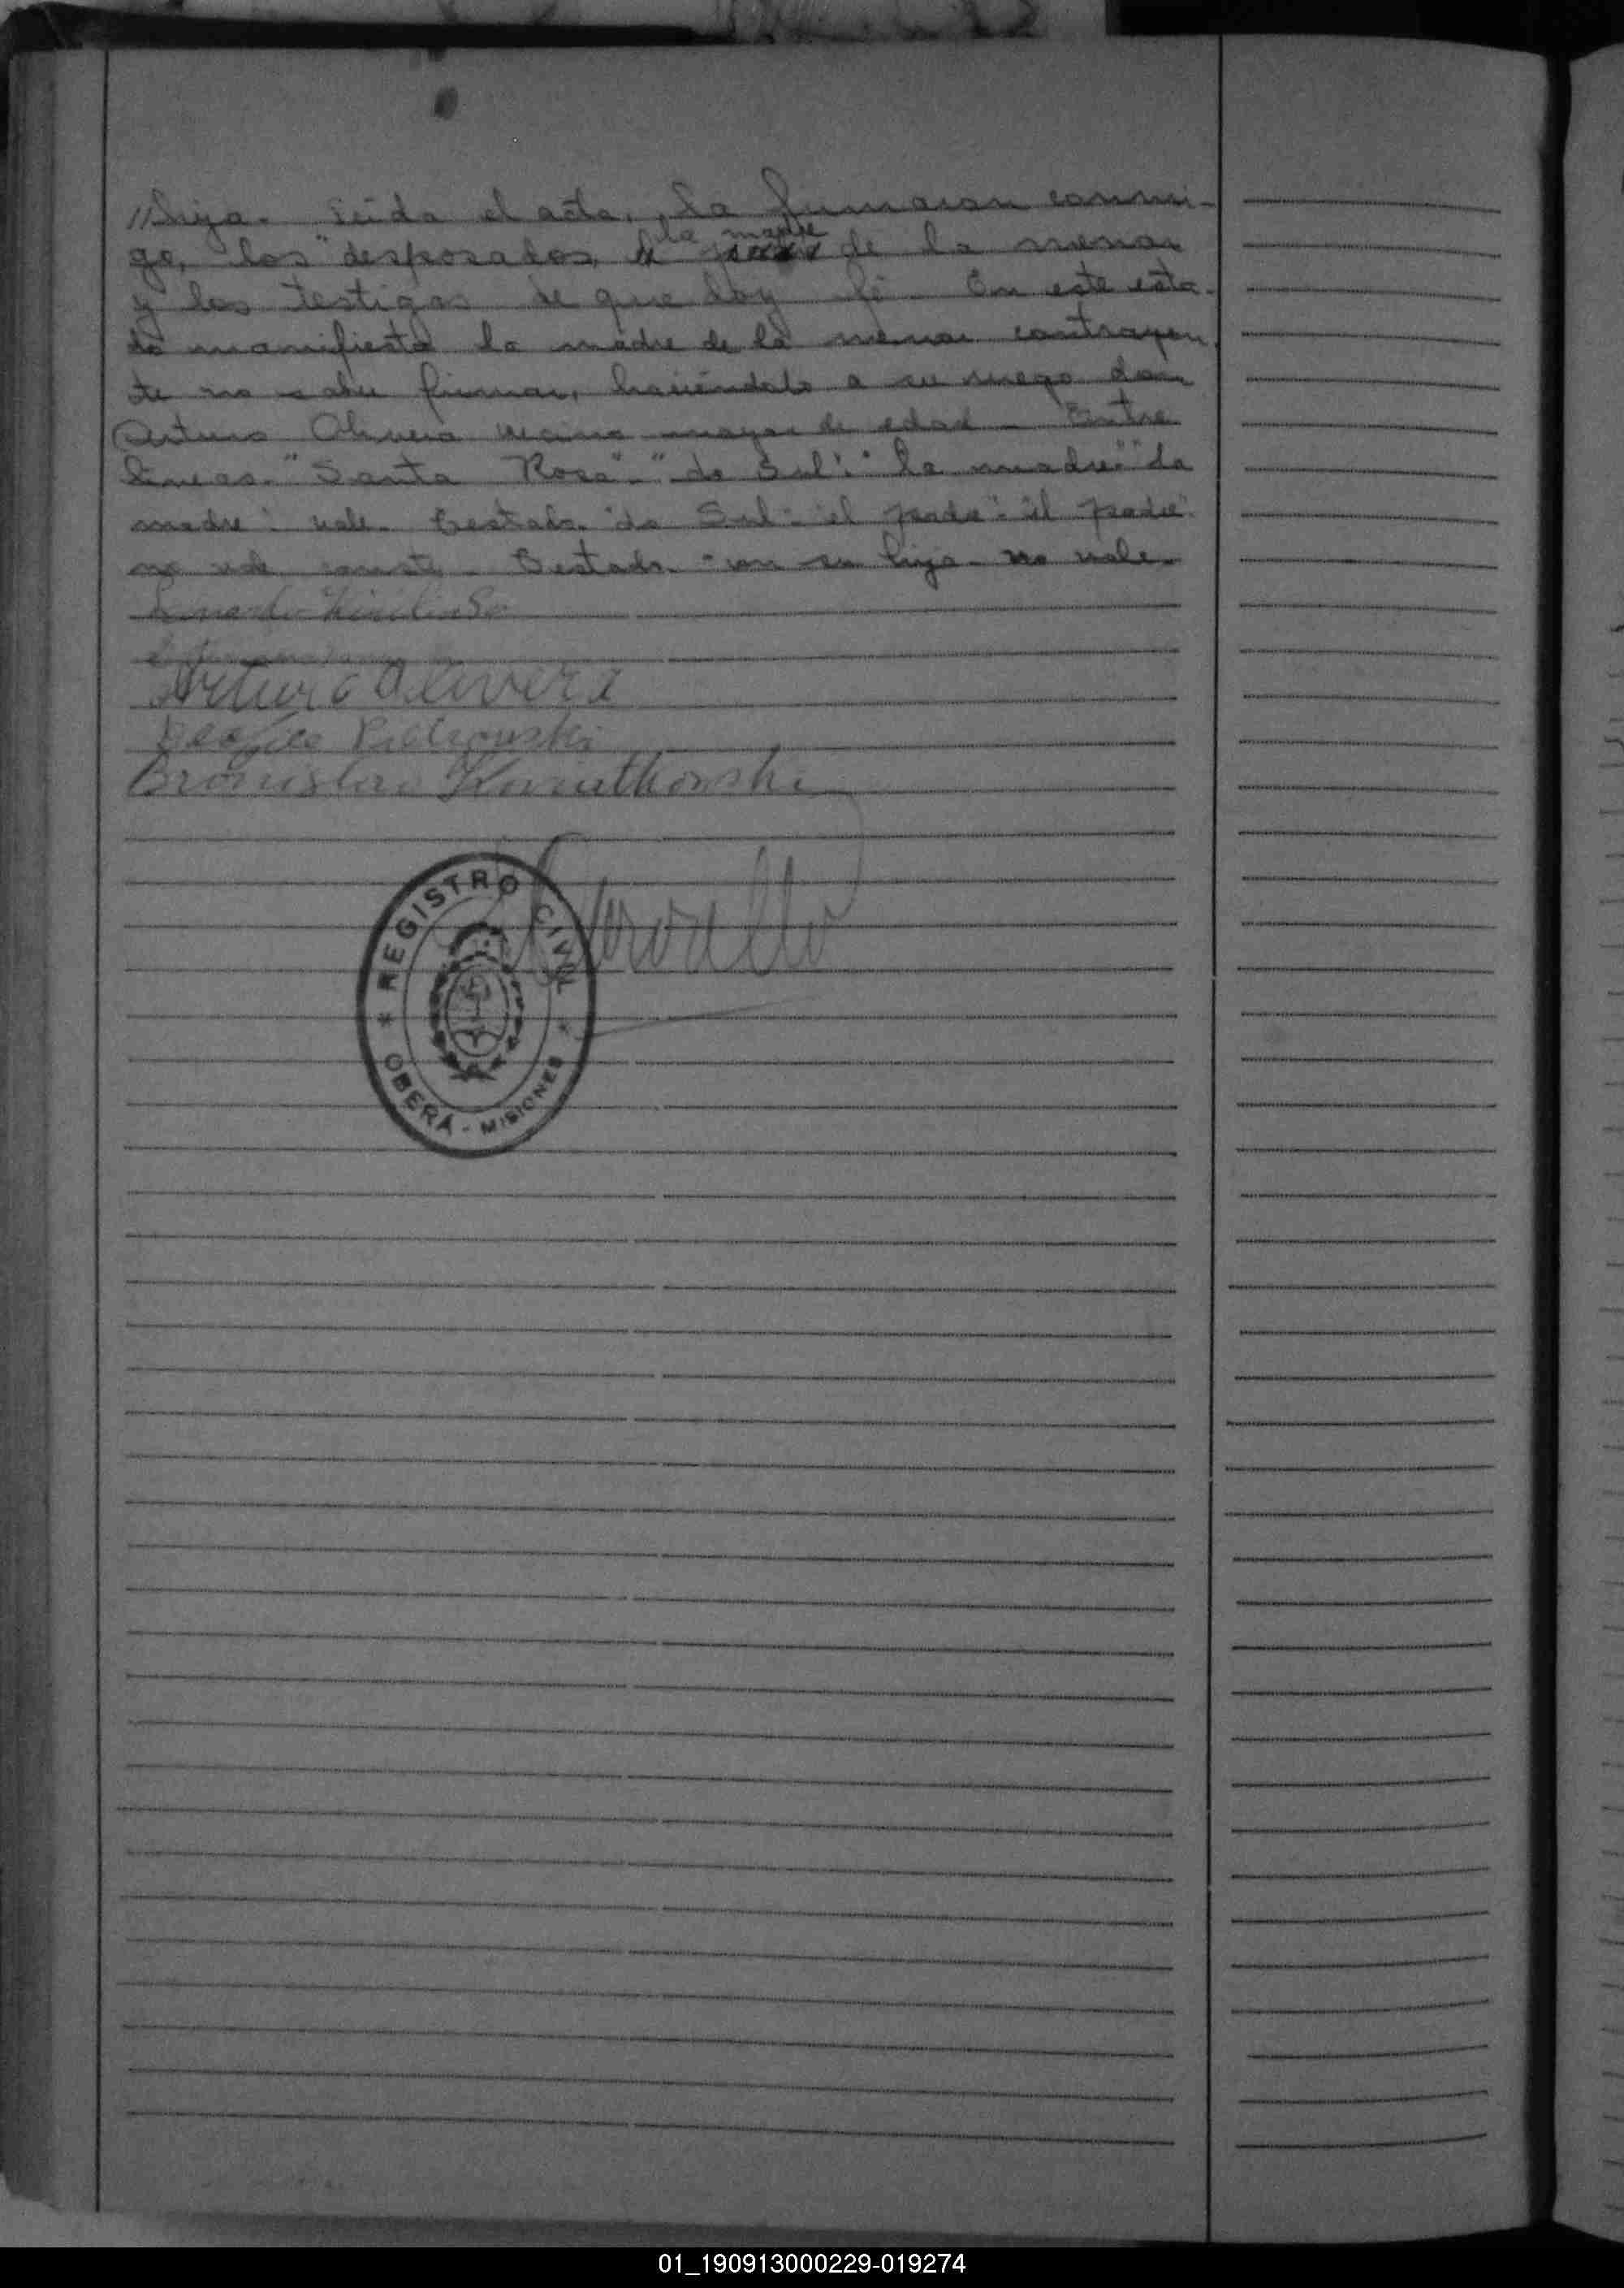 //hija. Leida el acta, la firmaron conmi-
go, los desposados, la madre de la menor
y los testigos de que doy fé. En este esta-
do manifiesta la madre de la menor contrayen-
te no saber firmar, haciéndolo a su ruego don
Arturo Olivera vecino mayor de edad. Entre
lineas. "Santa Rosa". "do Sul". "la madre" "la
madre". vale. Testado. "do Sul". "el padre". "el padre".
no vale conste. Testado. "con su hija. no vale.
Arturo Olivera
Pietrowski
Bronislao Kwiatkowski
REGISTRO CIVIL
OBERÁ - MISIONES
01_190913000229-019274